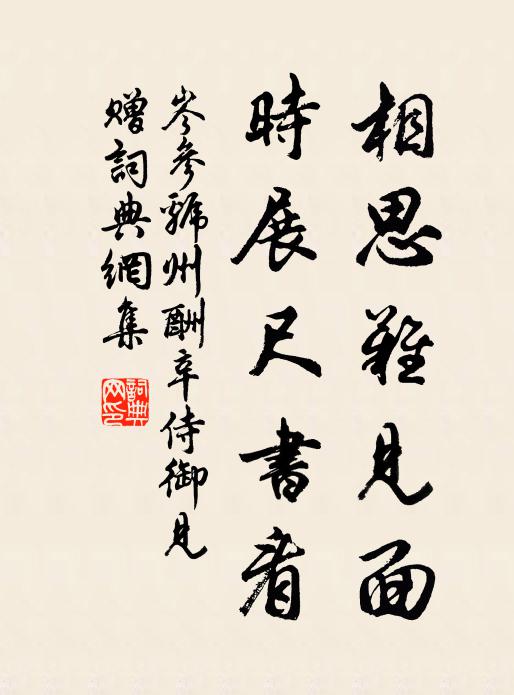 相思難見面
時展尺書看
岑參虢州酬辛侍御見
贈詞典網集
詞典网印